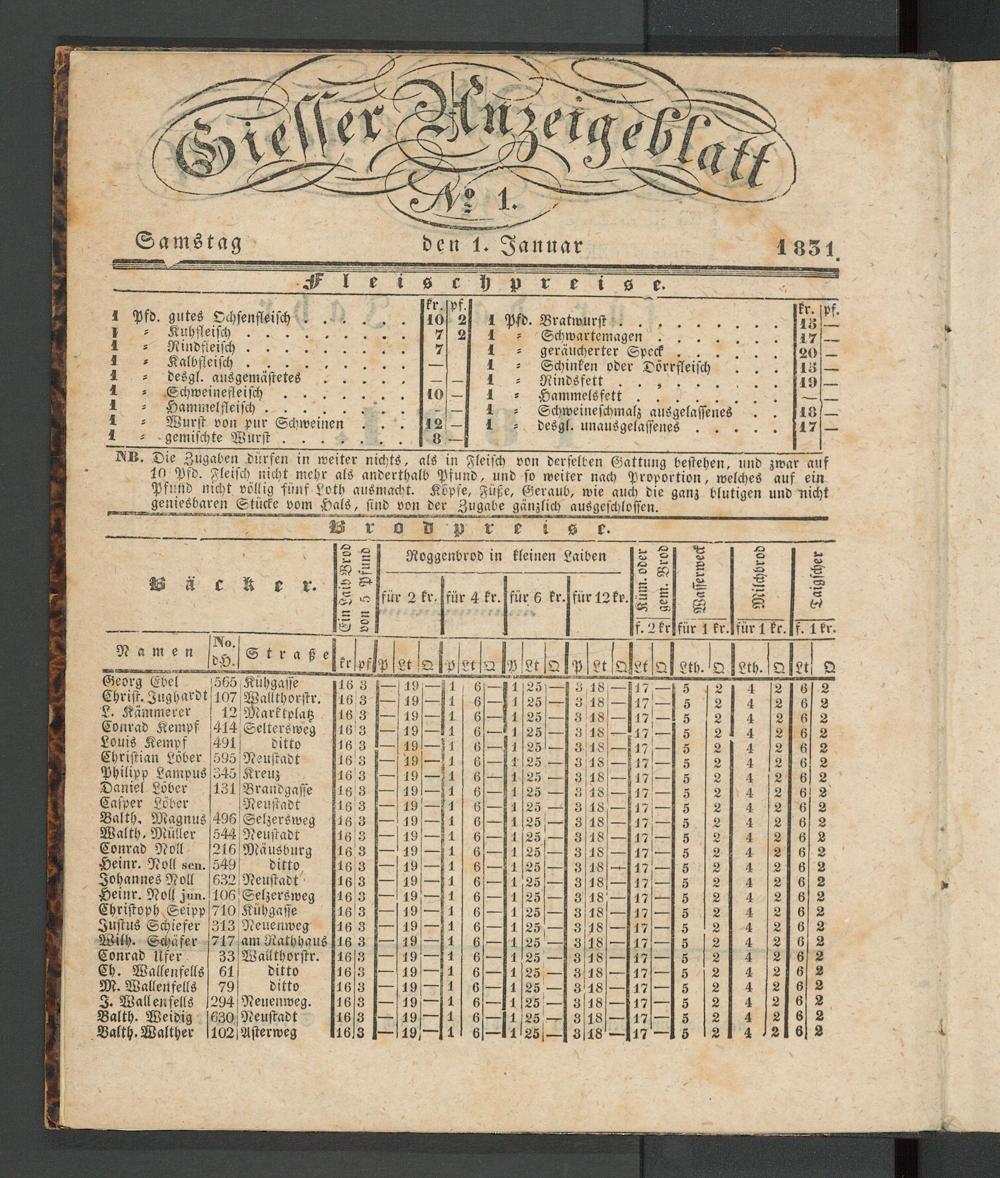 Giesser Anzeigeblatt
No 1.
Samstag den 1. Januar 1831.
Fleischpreise.
kr. pf.
1 Pfd. gutes Ochsenfleisch . . . . . . 10 2
1 " Kuhfleisch . . . . . . . . . 7 2
1 " Rindfleisch . . . . . . . . . 7
1 " Kalbfleisch . . . . . . . . . —
1 " desgl. ausgemästetes . . . . . — —
1 " Schweinefleisch . . . . . . . 10 —
1 " Hammelfleisch . . . . . . . .
1 " Wurst von pur Schweinen . . . 12 —
1 " gemischte Wurst . . . . . . . 8 —
kr. pf.
1 Pfd. Bratwurst . . . . . . . . . 13 —
1 " Schwartemagen . . . . . . . 17 —
1 " geräucherter Speck . . . . . . 20 —
1 " Schinken oder Dörrfleisch . . . . 13 —
1 " Rindsfett . . . . . . . . . 19 —
1 " Hammelsfett . . . . . . . . — —
1 " Schweineschmalz ausgelassenes . . 18 —
1 " desgl. unausgelassenes . . . . . 17 —
NB. Die Zugaben dürfen in weiter nichts, als in Fleisch von derselben Gattung bestehen, und zwar auf
10 Pfd. Fleisch nicht mehr als anderthalb Pfund, und so weiter nach Proportion, welches auf ein
Pfund nicht völlig fünf Loth ausmacht. Köpfe, Füße, Geraub, wie auch die ganz blutigen und nicht
geniesbaren Stücke vom Hals, sind von der Zugabe gänzlich ausgeschlossen.
Brodpreise.
Bäcker.
Ein Laib Brod
von 5 Pfund
Roggenbrod in kleinen Laiben
für 2 kr. für 4 kr. für 6 kr. für 12 kr.
Küm. oder
gem. Brod
f. 2 kr
Wasserweck
für 1 kr.
Milchbrod
für 1 kr.
Taigscher
f. 1 kr.
Namen No. d.H. Straße kr pf P Lt Q P Lt Q P Lt Q P Lt Q Lt Q Lth. Q Lth. Q Lt Q
Georg Ebel 565 Kühgasse 16 3 — 19 — 1 6 — 1 25 — 3 18 — 17 — 5 2 4 2 6 2
Christ. Jughardt 107 Wallthorstr. 16 3 — 19 — 1 6 — 1 25 — 3 18 — 17 — 5 2 4 2 6 2
L. Kämmerer 12 Marktplatz 16 3 — 19 — 1 6 — 1 25 — 3 18 — 17 — 5 2 4 2 6 2
Conrad Kempf 414 Seltersweg 16 3 — 19 — 1 6 — 1 25 — 3 18 — 17 — 5 2 4 2 6 2
Louis Kempf 491 ditto 16 3 — 19 — 1 6 — 1 25 — 3 18 — 17 — 5 2 4 2 6 2
Christian Löber 595 Neustadt 16 3 — 19 — 1 6 — 1 25 — 3 18 — 17 — 5 2 4 2 6 2
Philipp Lampus 345 Kreuz 16 3 — 19 — 1 6 — 1 25 — 3 18 — 17 — 5 2 4 2 6 2
Daniel Löber 131 Brandgasse 16 3 — 19 — 1 6 — 1 25 — 3 18 — 17 — 5 2 4 2 6 2
Casper Löber Neustadt 16 3 — 19 — 1 6 — 1 25 — 3 18 — 17 — 5 2 4 2 6 2
Balth. Magnus 496 Selzersweg 16 3 — 19 — 1 6 — 1 25 — 3 18 — 17 — 5 2 4 2 6 2
Walth. Müller 544 Neustadt 16 3 — 19 — 1 6 — 1 25 — 3 18 — 17 — 5 2 4 2 6 2
Conrad Noll 216 Mäusburg 16 3 — 19 — 1 6 — 1 25 — 3 18 — 17 — 5 2 4 2 6 2
Heinr. Noll sen. 549 ditto 16 3 — 19 — 1 6 — 1 25 — 3 18 — 17 — 5 2 4 2 6 2
Johannes Noll 632 Neustadt 16 3 — 19 — 1 6 — 1 25 — 3 18 — 17 — 5 2 4 2 6 2
Heinr. Noll jun. 106 Selzersweg 16 3 — 19 — 1 6 — 1 25 — 3 18 — 17 — 5 2 4 2 6 2
Christoph Seipp 710 Kühgasse 16 3 — 19 — 1 6 — 1 25 — 3 18 — 17 — 5 2 4 2 6 2
Justus Schiefer 313 Neuenweg 16 3 — 19 — 1 6 — 1 25 — 3 18 — 17 — 5 2 4 2 6 2
Wilh. Schäfer 717 am Rathhaus 16 3 — 19 — 1 6 — 1 25 — 3 18 — 17 — 5 2 4 2 6 2
Conrad Ufer 33 Wallthorstr. 16 3 — 19 — 1 6 — 1 25 — 3 18 — 17 — 5 2 4 2 6 2
Ch. Wallenfells 61 ditto 16 3 — 19 — 1 6 — 1 25 — 3 18 — 17 — 5 2 4 2 6 2
M. Wallenfells 79 ditto 16 3 — 19 — 1 6 — 1 25 — 3 18 — 17 — 5 2 4 2 6 2
J. Wallenfells 294 Neuenweg. 16 3 — 19 — 1 6 — 1 25 — 3 18 — 17 — 5 2 4 2 6 2
Balth. Weidig 630 Neustadt 16 3 — 19 — 1 6 — 1 25 — 3 18 — 17 — 5 2 4 2 6 2
Balth. Walther 102 Asterweg 16 3 — 19 — 1 6 — 1 25 — 3 18 — 17 — 5 2 4 2 6 2